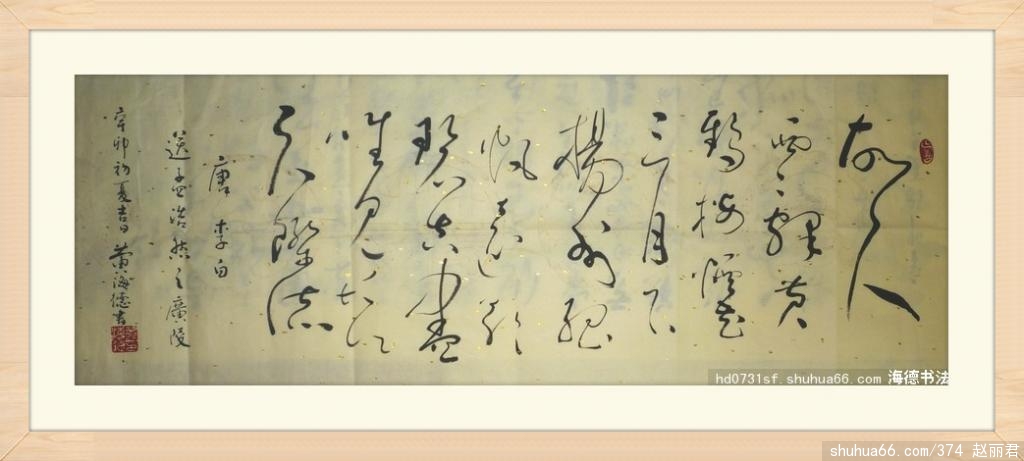 故人
西辭黄
鶴樓煙花
三月下
揚州孤
帆遠影
碧空盡
唯見長江
天際流
唐 李白
送孟浩然之廣陵
辛卯初夏吉日 黄海德書
hd0731sf.shuhua66.com 海德书法
shuhua66.com/374 赵丽君